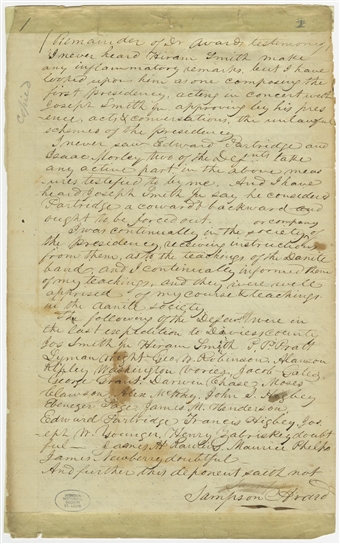 1
(Remainder of Dr Avards testimony)
I never heard Hiram Smith make
any inflammatory remarks, but I have
looked upon him as one composing the
first Presidency, acting in concert with
Joseph Smith jr approving by his pres
ence, acts & conversations, the unlawful
schemes of the presidency
I never saw Edward Partridge and
Isaac Morley two of the Defents take
any active part, in the above meas
ures testified to by me. And I have
heard Joseph Smith jr say he considered
Partridge a coward & backward and
ought to be forced out. or company
I was continually in the society of
the Presidency, receiving instructions
from them, as to the teachings of the Danite
band, and I continually informed them
of my teachings, and they were well
apprised of my course & teachings
in the Danite society
The following of the Defents were in
the last expedition to Daviess county
Jos Smith jr Hiram Smith P. P. Pratt
Lyman Wight Geo W. Robinson Alanson
Ripley Washington Vorees, Jacob Gates
George Grant, Darwin Chase, Moses
Clawson, Alex McRay, John S. Higbey
Ebenezer Page James M. Henderson
Edward Partridge Francis Higbey Jos
eph W. Younger Henry Zabriskey doubt
ful James H. Rawlins Maurice Phelps
James Newberry doubtful
And further this deponent saith not
Sampson Avard
Copied